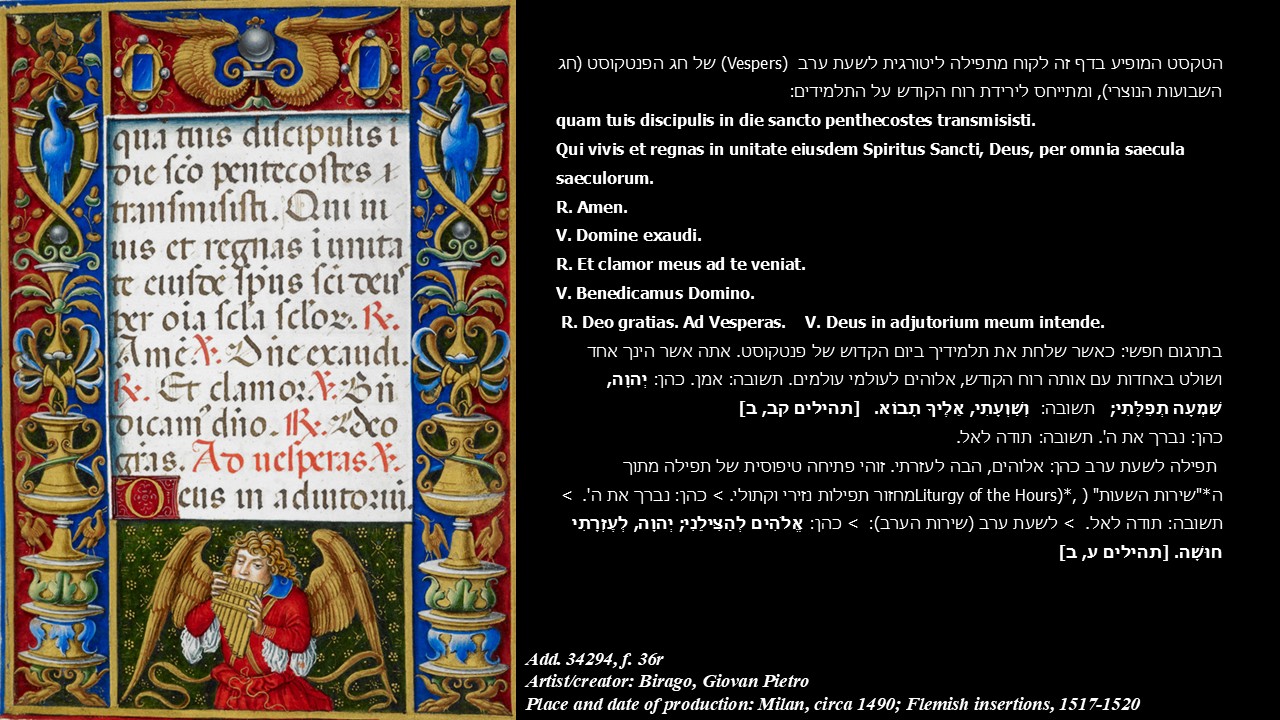 quā tuis discipulis ī
die sc̄o pentecostes ·
transmisisti. Qui ui
uis et regnas ī unita
te eiusdē sp̄us sc̄i deus
per oīa sc̄la sc̄lor̄. R̄.
Amē V̄. Dn̄e exaudi.
R̄. Et clamor. V̄. Bn̄
dicamꝰ dn̄o. R̄. Deo
grās. Ad uesperas. V̄.
Deus in adiutoriū
הטקסט המופיע בדף זה לקוח מתפילה ליטורגית לשעת ערב (Vespers) של חג הפנטקוסט (חג
השבועות הנוצרי), ומתייחס לירידת רוח הקודש על התלמידים:
quam tuis discipulis in die sancto penthecostes transmisisti.
Qui vivis et regnas in unitate eiusdem Spiritus Sancti, Deus, per omnia saecula
saeculorum.
R. Amen.
V. Domine exaudi.
R. Et clamor meus ad te veniat.
V. Benedicamus Domino.
R. Deo gratias. Ad Vesperas. V. Deus in adjutorium meum intende.
בתרגום חפשי: כאשר שלחת את תלמידיך ביום הקדוש של פנטקוסט. אתה אשר הינך אחד
ושולט באחדות עם אותה רוח הקודש, אלוהים לעולמי עולמים. תשובה: אמך. כהן: יְהוָה,
שִׁמְעָה תְפִלָּתִי; תשובה: וְשַׁוְעָתִי, אֵלֶיךָ תָבוֹא. [תהילים קב, ב]
כהן: נברך את ה'. תשובה: תודה לאל.
תפילה לשעת ערב כהן: אלוהים, הבה לעזרתי. זוהי פתיחה טיפוסית של תפילה מתוך
ה*"שירות השעות" ( ,*(Liturgy of the Hoursמחזור תפילות נזירי וקתולי. > כהן: נברך את ה'. >
תשובה: תודה לאל. > לשעת ערב (שירות הערב): > כהן: אֱלֹהִים לְהַצִּילֵנִי; יְהוָה, לְעֶזְרָתִי
חוּשָׁה. [תהילים ע, ב]
Add. 34294, f. 36r
Artist/creator: Birago, Giovan Pietro
Place and date of production: Milan, circa 1490; Flemish insertions, 1517-1520